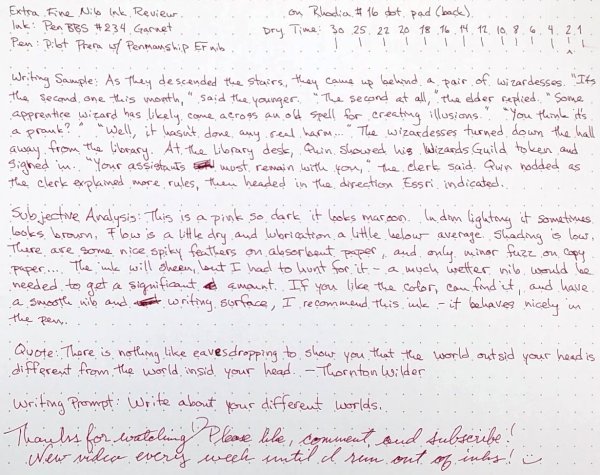 Extra Fine Nib Ink Review on Rhodia #16 dot pad (back)
Ink: PenBBS #234 Garnet Dry Time: 30 25 22 20 18 16 14 12 10 8 6 4 2 1
Pen: Pilot Prera w/ Penmanship EF nib
Writing Sample: As they descended the stairs, they came up behind a pair of wizardesses. "It's
the second one this month," said the younger. "The second at all," the elder replied. "Some
apprentice wizard has likely come across an old spell for creating illusions." "You think it's
a prank?" "Well, it hasn't done any real harm..." The wizardesses turned down the hall
away from the library. At the library desk, Quin showed his Wizards Guild token and
signed in. "Your assistants must remain with you," the clerk said. Quin nodded as
the clerk explained more rules, then headed in the direction Essri indicated.
Subjective Analysis: This is a pink so dark it looks maroon. In dim lighting it sometimes
looks brown. Flow is a little dry and lubrication a little below average. Shading is low.
There are some nice spiky feathers on absorbent paper, and only minor fuzz on copy
paper.... The ink will sheen, but I had to hunt for it - a much wetter nib would be
needed to get a significant amount. If you like the color, can find it, and have
a smooth nib and writing surface, I recommend this ink - it behaves nicely in
the pen.
Quote: There is nothing like eavesdropping to show you that the world outsid your head is
different from the world insid your head. - Thornton Wilder
Writing Prompt: Write about your different worlds.
Thanks for watching! Please like, comment and subscribe!
New video every week until I run out of inks! :)